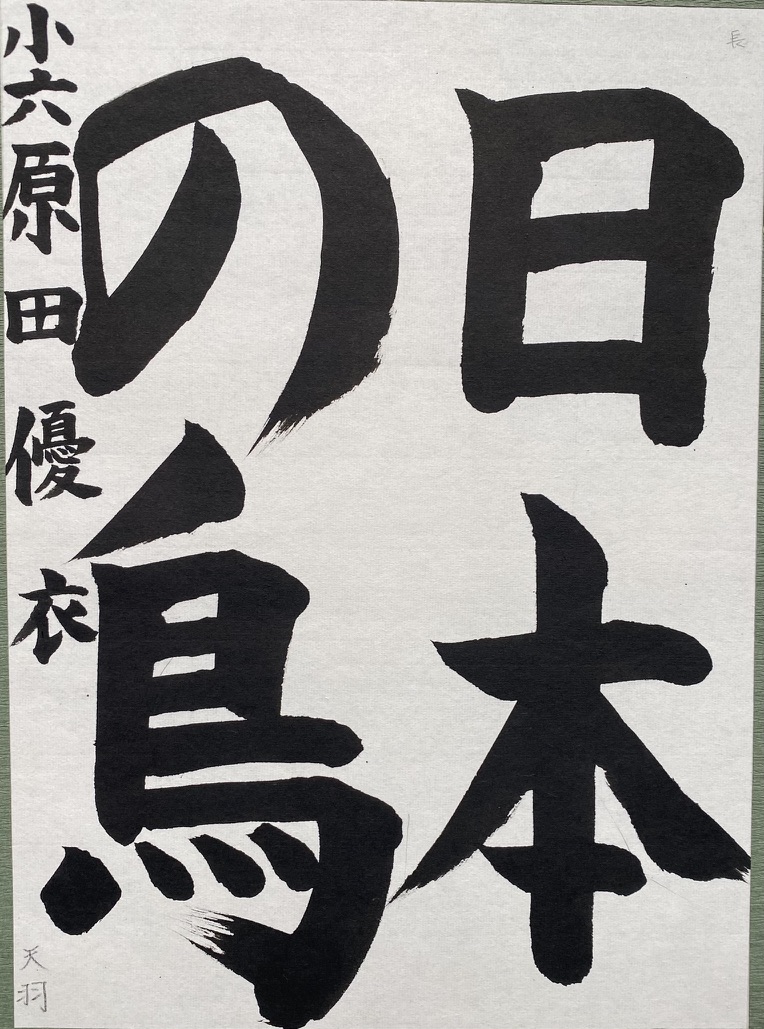 長
日本
の鳥
小六 原田優衣
天羽